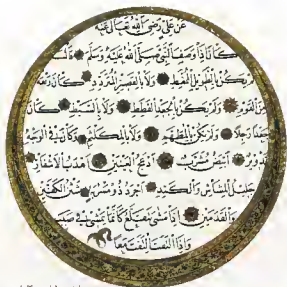 عَنْ عَلِيٍّ رَضِيَ اللهُ تَعَالَى عَنْهُ
كَانَ إِذَا وَصَفَ النَّبِيَّ صَلَّى اللهُ عَلَيْهِ وَسَلَّمَ قَالَ
لَمْ يَكُنْ بِالطَّوِيلِ الْمُمَّغِطِ وَلَا بِالْقَصِيرِ الْمُتَرَدِّدِ كَانَ رَبْعَةً
مِنَ الْقَوْمِ وَلَمْ يَكُنْ بِالْجَعْدِ الْقَطَطِ وَلَا بِالسَّبِطِ كَانَ
جَعْدًا رَجِلًا وَلَمْ يَكُنْ بِالْمُطَهَّمِ وَلَا بِالْمُكَلْثَمِ وَكَانَ فِي الْوَجْهِ
تَدْوِيرٌ أَبْيَضُ مُشْرَبٌ أَدْعَجُ الْعَيْنَيْنِ أَهْدَبُ الْأَشْفَارِ
جَلِيلُ الْمُشَاشِ وَالْكَتَدِ أَجْرَدُ ذُو مَسْرُبَةٍ شَثْنُ الْكَفَّيْنِ
وَالْقَدَمَيْنِ إِذَا مَشَى تَقَلَّعَ كَأَنَّمَا يَمْشِي فِي صَبَبٍ
وَإِذَا الْتَفَتَ الْتَفَتَ مَعًا